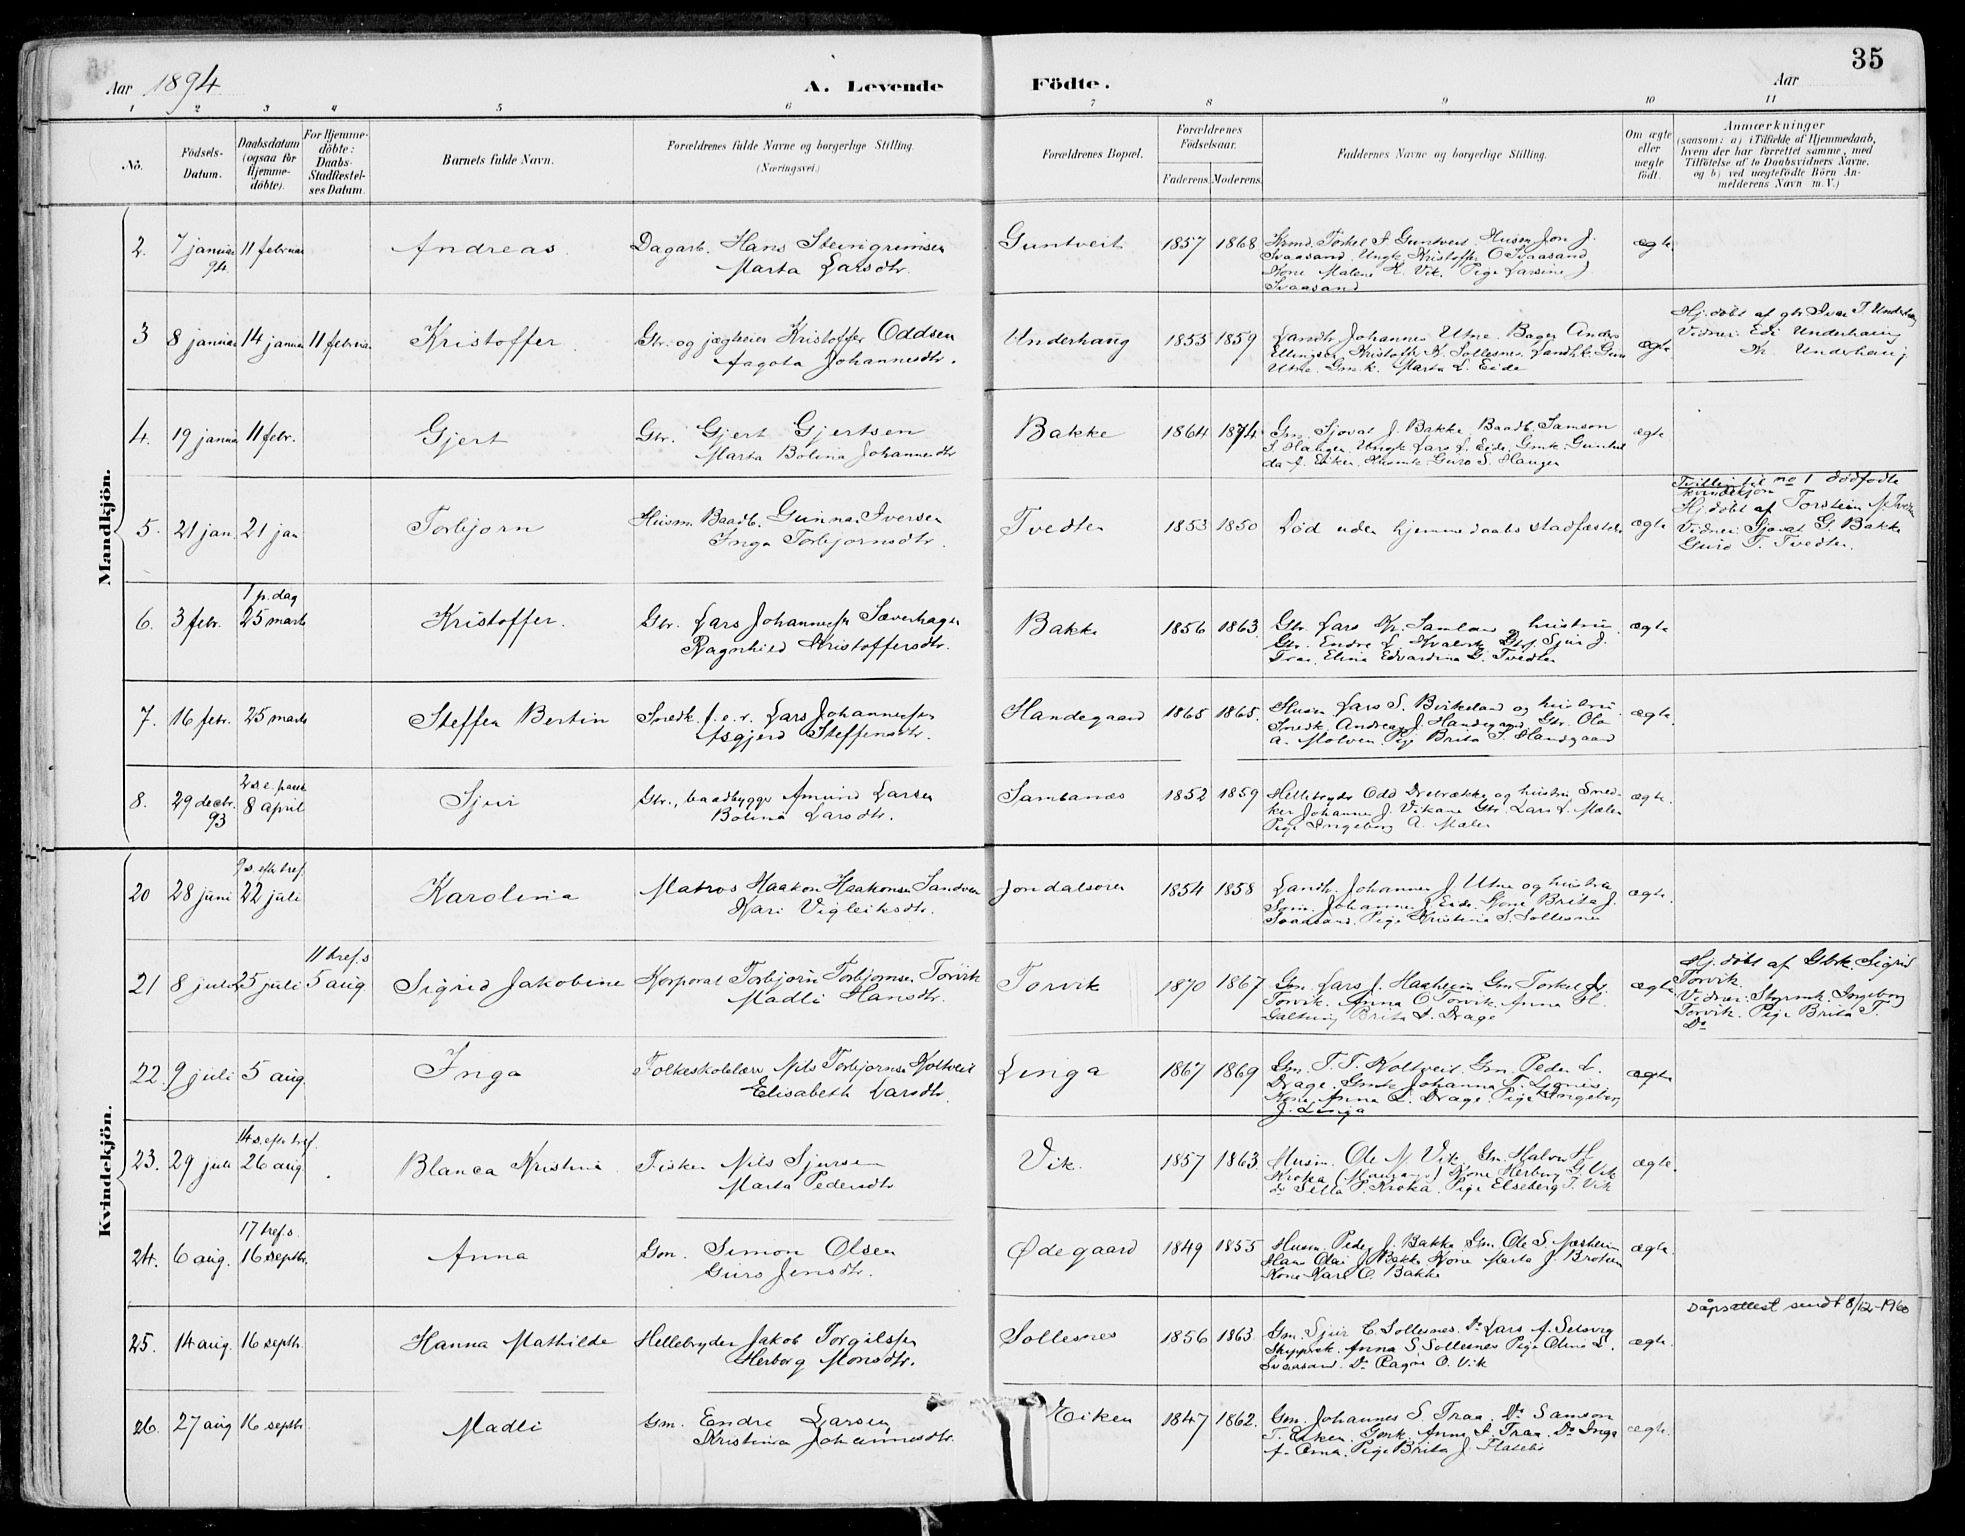 35
Aar 1894 A. Levende Födte. Aar
1 2 3 4 5 6 7 8 9 10 11
No.
Födsels-Datum.
Daabsdatum (ogsaa for Hjemme-döbte).
For Hjemme-döbte: Daabs-Stadfæstel-ses Datum.
Barnets fulde Navn.
Forældrenes fulde Navne og borgerlige Stilling. (Næringsvei.)
Forældrenes Bopæl.
Forældrenes Födselsaar.
Faderens. Moderens.
Faddernes Navne og borgerlige Stilling.
Om ægte eller uægte födt.
Anmærkninger
(saasom: a) i Tilfælde af Hjemmedaab,
hvem der har forrettet samme, med
Tilföielse af to Daabsvidners Navne,
og b) ved uægtefödte Börn An-
melderens Navn m. V.)
Mandkjön.
2. 7 januar 94. 11 februar Andreas Dagarb. Hans Steingrimsen
Marta Larsdtr.
Guntveit 1857 1868 Krmd. Torkel S. Guntveit. Husm Jon J.
Svaasand. Ungk. Kristoffer O Svaasand
Kone Malene K. Vik. Pige Larsine J
Svaasand
ægte.
3 8 januar 14 januar 11 februar Kristoffer Gbr. og jægteier Kristoffer Oddsen
Aagota Johannesdtr.
Underhaug 1853 1859 Landh. Johannes Utne. Bager Andrs
Ellingsen Kristoffer K. Sollesnes. Landhk. Guro
Utne. Gmk. Marta L. Eide
ægte
Hj.döbt af gbr Ivar T. Underhaug
Vidner: Edi Underhaug
Kr. Underhaug
4. 19 januar 11 febr. Gjert Gbr. Gjert Gjertsen
Marta Bolina Johannesdtr
Bakke 1864 1874 Gm. Sjovat J. Bakke Baadb. Samson
S. Haugen. Ungk. Lars L. Eide. Gmk. Gunhil
da A. Eiken. Husmk. Guro S. Haugen
ægte
5. 21 jan. 21 jan Torbjörn Husm. Baadb. Gunnar Iversen
Inga Torbjørnsdtr.
Tvedten 1853 1850 Död uden hjemmedaabs stadfæstelse ægte
Tvilling til no 1 dödfödte
kvindekjön
Hj.döbt af Torstein N. Tveten
Vidner: Sjovat G. Bakke
Guro T. Tvedten.
6. 3 febr. 1 p. dag
25 marts Kristoffer. Gbr. Lars Johannessen Sæverhagen
Ragnhild Kristoffersdtr.
Bakke 1856 1863. Gbr. Lars Kr. Samland og hustru.
Gbr. Endre L. Kvalvik Gbr. Sjur J.
Traa, Elina Edvardina G. Tvedten
ægte
7. 16 febr. 25 marts Steffen Bertin Snedk. f.e.v. Lars Johannessen
Asgjerd Steffensdtr.
Handegaard 1865 1865. Husm Lars S. Birkeland og hustru.
Snedk. Andreas J. Handegaard Gbr. Ola
A. Molven. Pige Brita S. Handegaard
ægte.
8. 29 decbr. 93 2 s. e. paask
8 april Sjur Gbr., baadbygger Amund Larsen
Bolina Larsdtr.
Sambanæs 1852 1859 Hellebryder Odd Drebrække og hustru Sned-
ker Johannes J. Vikane Gbr. Lars L. Mælen
Pige Ingeborg A. Mælen
ægte.
Kvindekjön.
20 28 juni 9 s. eft. tref.
22 juli Karolina Matros Haakon Haakonsen Sandven
Kari Vigleiksdtr.
Jondalsøren 1854 1858 Landh. Johannes J. Utne og hustru
Gm. Johannes J. Eide. Kone Brita J.
Svaasand. Pige Kristina S. Sollesnes
ægte.
21 8 juli 25 juli 11 tref. s
5 aug Sigrid Jakobine Korporal Torbjørn Torbjørnsen Torvik
Madli Hansdtr.
Torvik 1870 1867 Gm. Lars J. Haaheim Gm Torkel A.
Torvik. Anna O Torvik. Anna H.
Galtung Brita L. Drage
ægte
Hj.döbt af Gbrk. Sigrid
Torvik.
Vidner: Styrmk. Ingeborg
Torvik. Pige Brita T.
Do
22. 9 juli 5 aug. Inga Folkeskolelærer Nils Torbjørnsen Koltveit
Elisabeth Larsdtr.
Linga 1867 1869 Gm. T. T. Koltveit Gm. Peder L.
Drage. Gmk Johanna T. Ljones.
Kone Anna L. Drage. Pige Ingeborg
J. Linga
ægte
23. 29 juli 14 s. efter tref.
26 aug. Blanca Kristine Fisker Nils Sjursen
Marta Pedersdtr
Vik. 1857 1863. Husm. Ole N. Vik. Gm Halvor H.
Kroka (Mauranger) Kone Herborg G. Vik
do Silla P. Kroka. Pige Elseberg T. Vik
ægte.
24. 6 aug. 17 tref. s.
16 septbr. Anna Gm. Simon Olsen
Guro Jensdtr.
Ødegaard 1849 1855 Husm. Peder J. Bakke Gm. Ole S. Næsheim
Hans Olai J Bakke Kone Marta J. Broteen
Kone Kari O. Bakke
ægte
25. 14 aug. 16 septbr. Hanna Mathilde Hellebryder Jakob Torgilssen
Herborg Monsdtr.
Sollesnes 1856 1863. Gm. Sjur C. Sollesnes. Do Lars A. Selsvig
Skippsk. Anna S. Sollesnes Pige Olina L.
Svaasand. Do Ragna O. Vik
ægte.
Dåpsattest sendt 8/12-1960
26. 27 aug 16 septbr Madli Gm. Endre Larsen
Kristina Johannesdtr.
Eiken 1847 1862. Gm. Johannes S. Traa. Do Samson
T. Eiken. Gmk. Anna S. Traa. Do Inga
A. Oma. Pige Brita J. Flatebø
ægte.